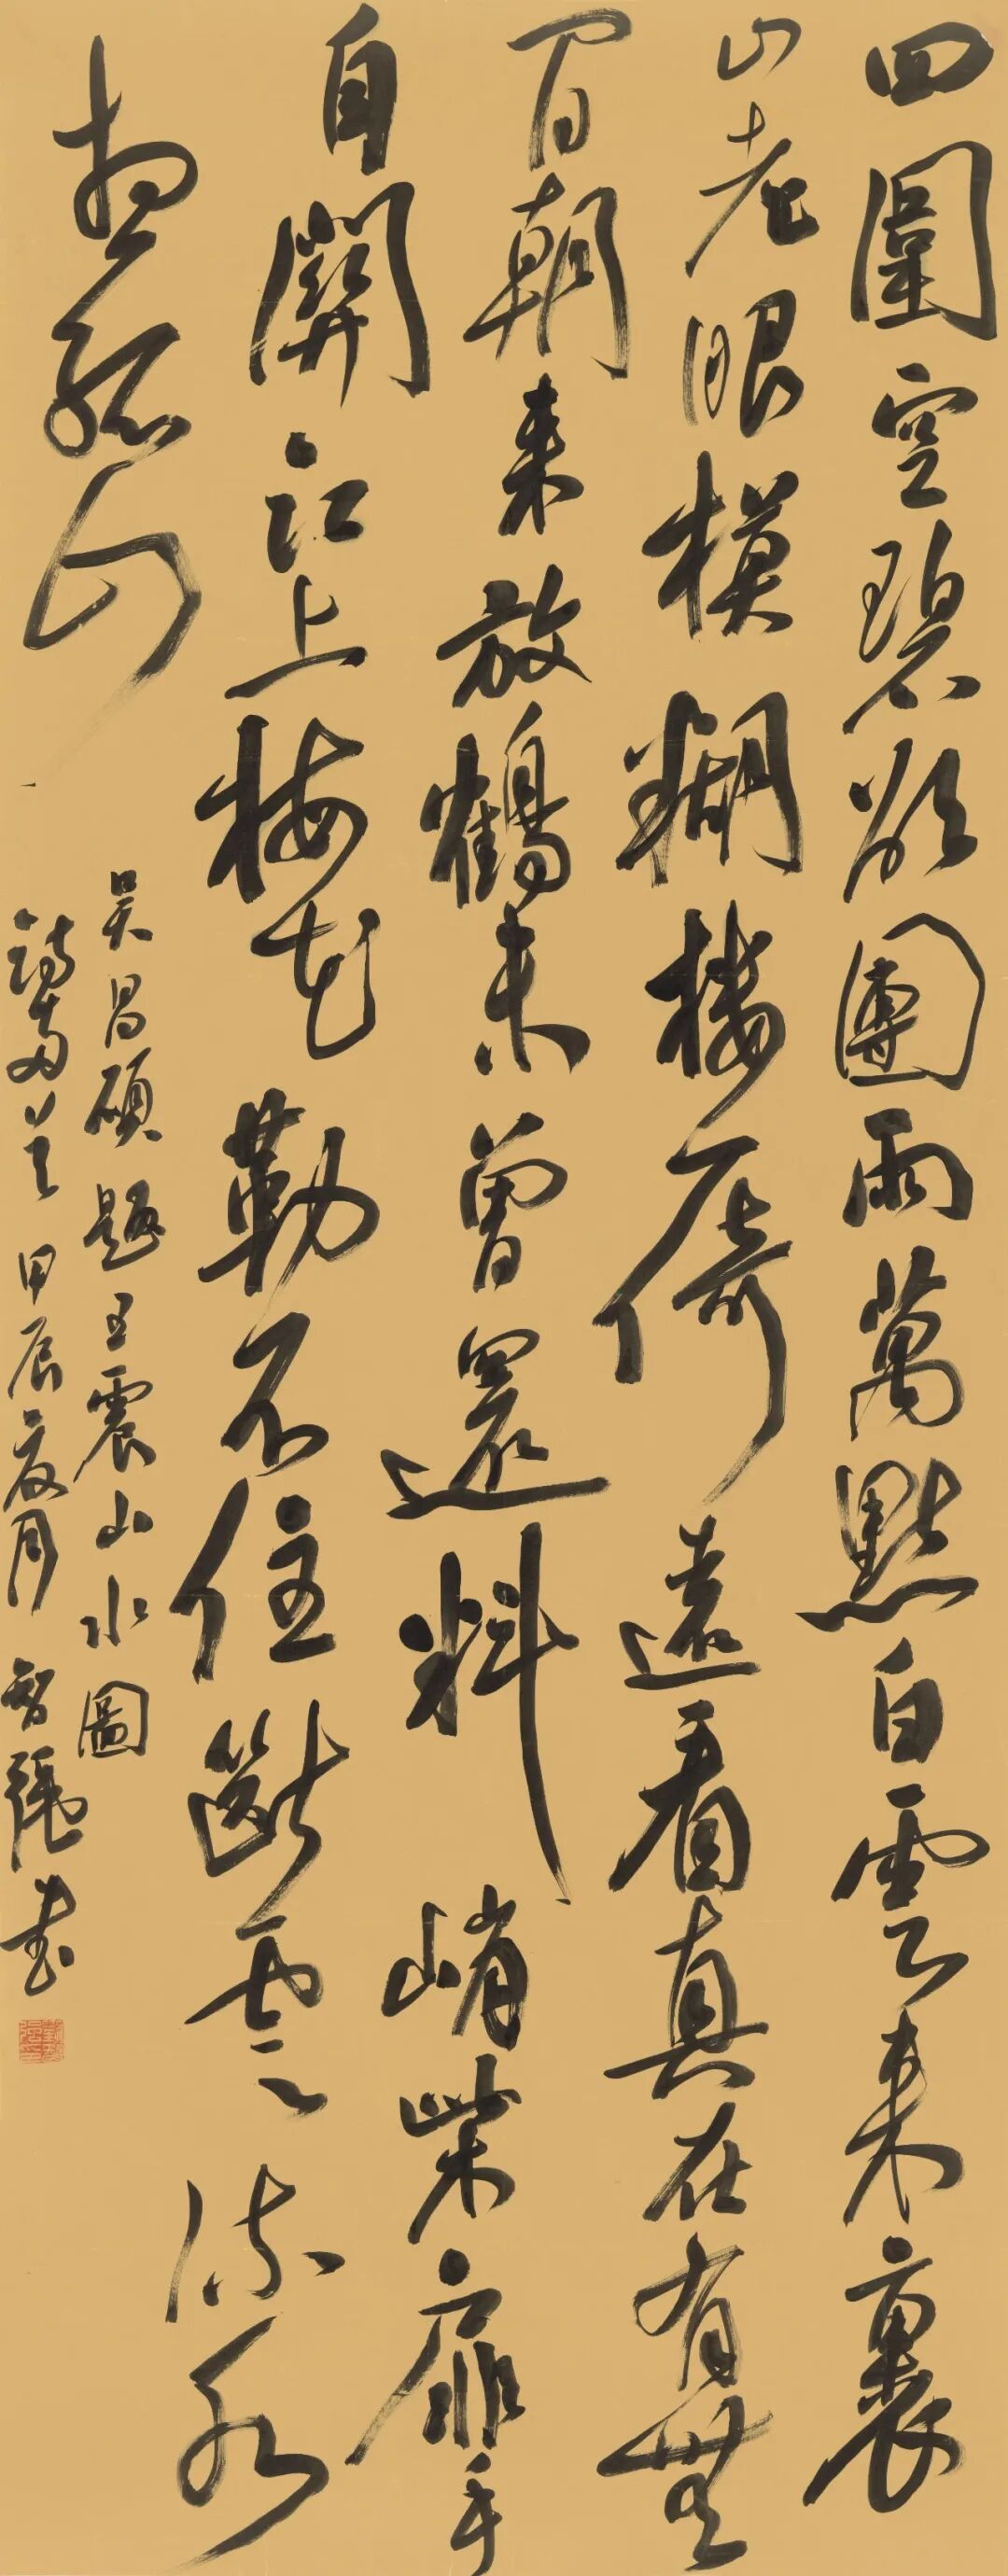 四圍空碧欲團雨萬點白雲來裏
山老眼模糊樓倚遠看真在有無
間朝來放鶴未曾還料峭柴扉手
自開江上梅花勒不住斷雲流水
想孤山
吳昌碩題王震山水圖
詩兩首甲辰夏月智強書